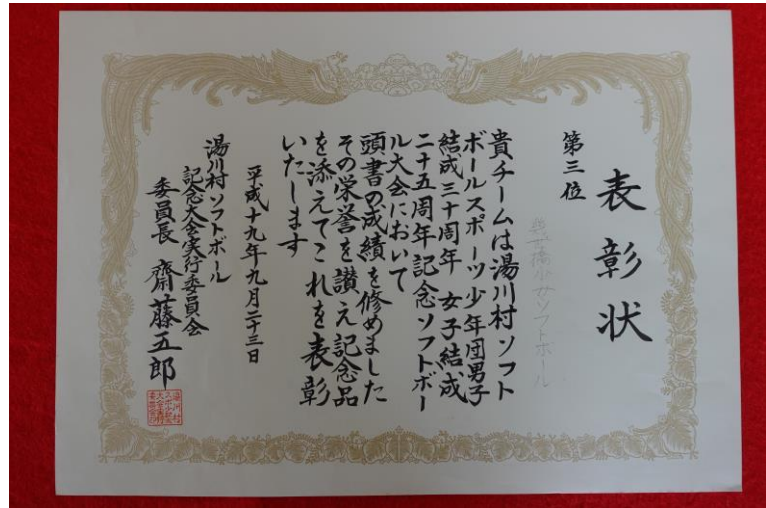 表彰状
第三位
少女ソフトボール
貴チームは湯川村ソフト
ボールスポーツ少年団男子
結成三十周年 女子結成
二十五周年記念ソフトボー
ル大会において
頭書の成績を修めました
その栄誉を讃え記念品
を添えてこれを表彰
いたします
平成十九年九月二十三日
湯川村ソフトボール
記念大会実行委員会
委員長 齋藤五郎